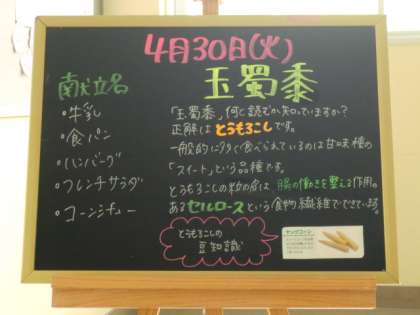 4月30日(火)
献立名
・牛乳
・食パン
・ハンバーグ
・フレンチサラダ
・コーンシチュー
玉蜀黍
「玉蜀黍」何と読むか知っていますか?
正解はとうもろこしです。
一般的に多く食べられているのは甘味種の
「スイート」という品種です。
とうもろこしの粒の皮は腸の働きを整える作用の
あるセルロースという食物繊維でできています。
とうもろこしの
豆知識
ヤングコーン